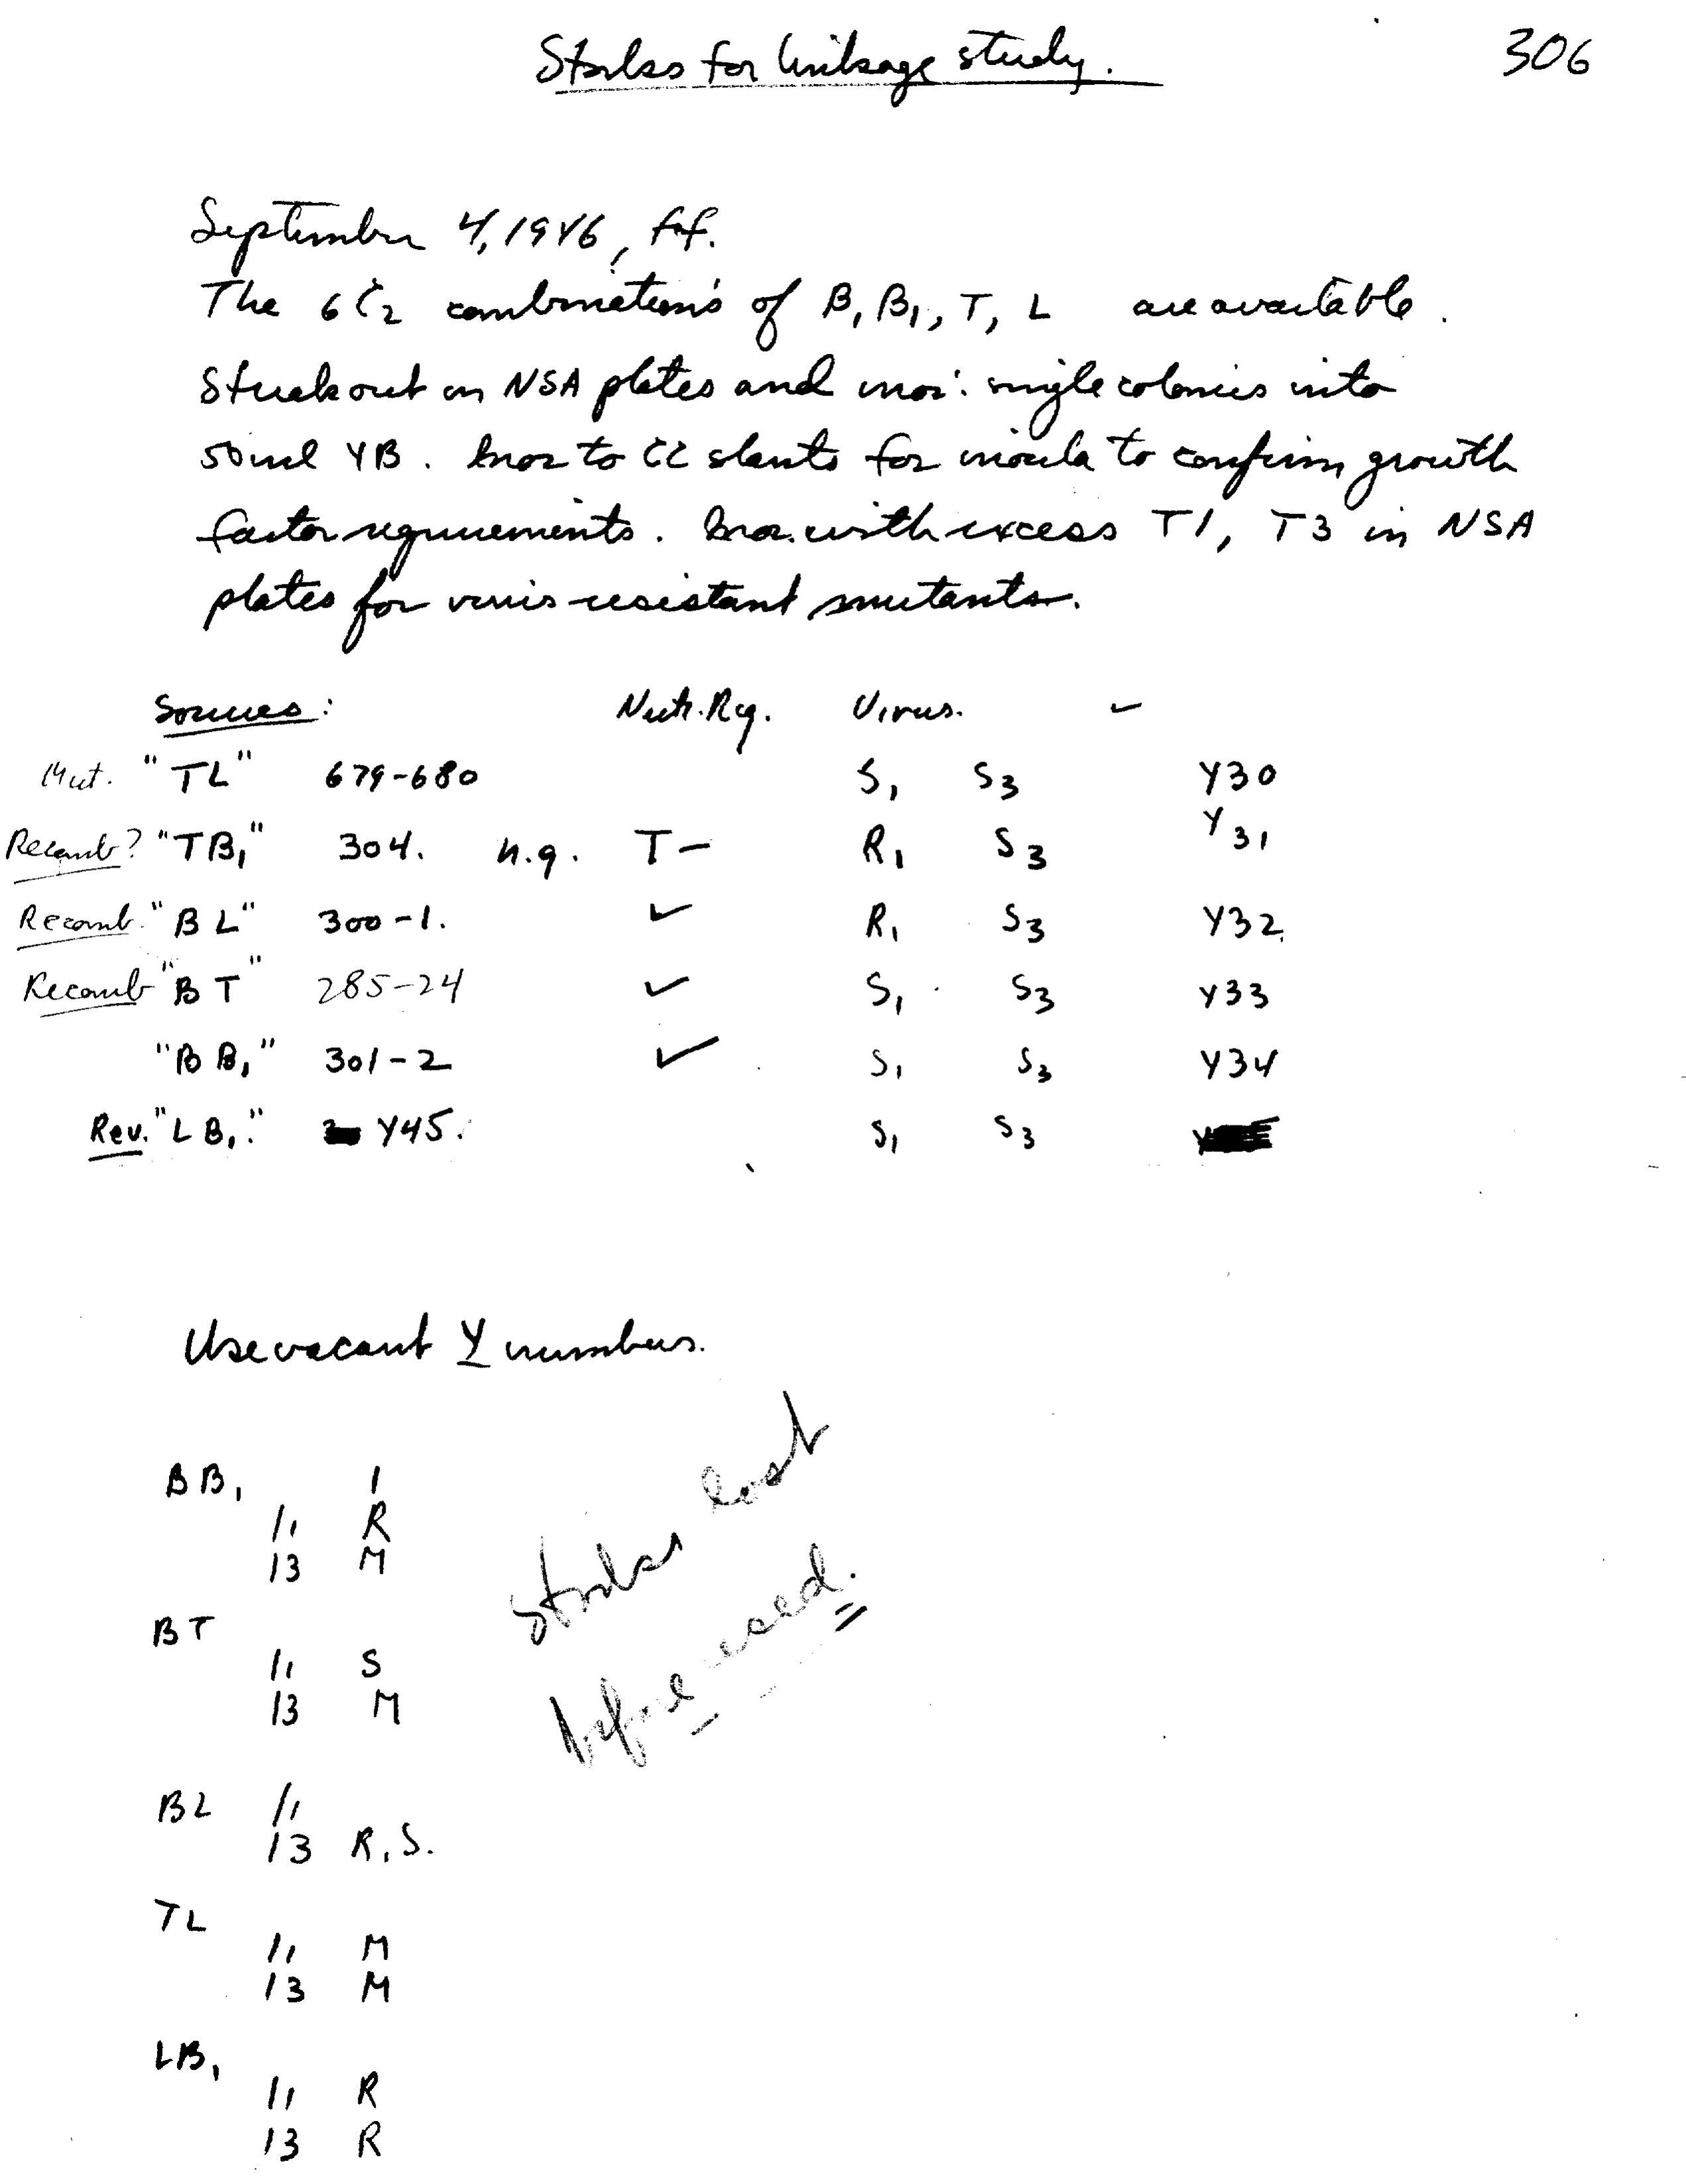 Stocks for linkage study. 306
September 4, 1946, f.f.
The 6 C2 combinations of B, B1, T, L are available.
Streak out on NSA plates and inoc: single colonies into
50 ml YB. Inoc to CC slants for inocula to confirm growth
factor requirements. Inoc. with excess T1, T3 in NSA
plates for virus resistant mutants.
Sources: Nutr. Req. Virus. ✓
Mut. "TL" 679-680 S1 S3 Y30
Recomb? "TB1" 304. n.g. T- R1 S3 Y31
Recomb. "BL" 300-1. ✓ R1 S3 Y32
Recomb "BT" 285-24 ✓ S1 S3 Y33
"BB1" 301-2 ✓ S1 S3 Y34
Rev. "LB1." Y45. S1 S3
Use vacant Y numbers.
BB1 1
/1 R
/3 M
BT
/1 S
/3 M
stocks lost
before used.
BL /1
/3 R, S.
TL
/1 M
/3 M
LB1
/1 R
/3 R